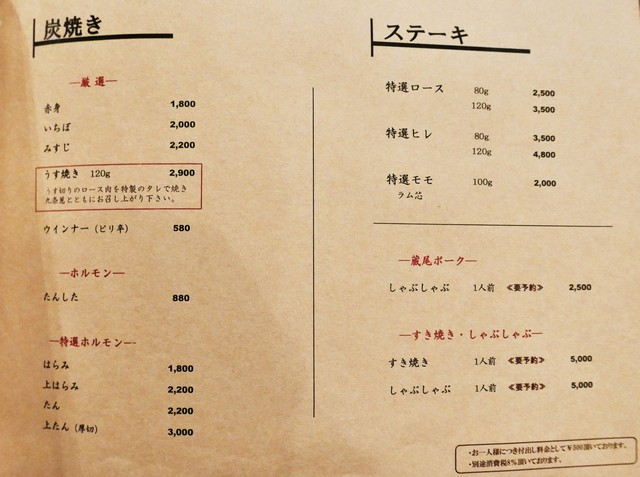 炭焼き
―厳選―
赤身 1,800
いちぼ 2,000
みすじ 2,200
うす焼き 120g 2,900
うす切りのロース肉を特製のタレで焼き
九条葱とともにお召し上がり下さい。
ウインナー(ピリ辛) 580
―ホルモン―
たんした 880
―特選ホルモン―
はらみ 1,800
上はらみ 2,200
たん 2,200
上たん(厚切) 3,000
ステーキ
特選ロース 80g 2,500
120g 3,500
特選ヒレ 80g 3,500
120g 4,800
特選モモ 100g 2,000
ラム芯
―蔵尾ポーク―
しゃぶしゃぶ 1人前 ≪要予約≫ 2,500
―すき焼き・しゃぶしゃぶ―
すき焼き 1人前 ≪要予約≫ 5,000
しゃぶしゃぶ 1人前 ≪要予約≫ 5,000
・お一人様につき付出し料金として¥500頂いております。
・別途消費税8%頂いております。